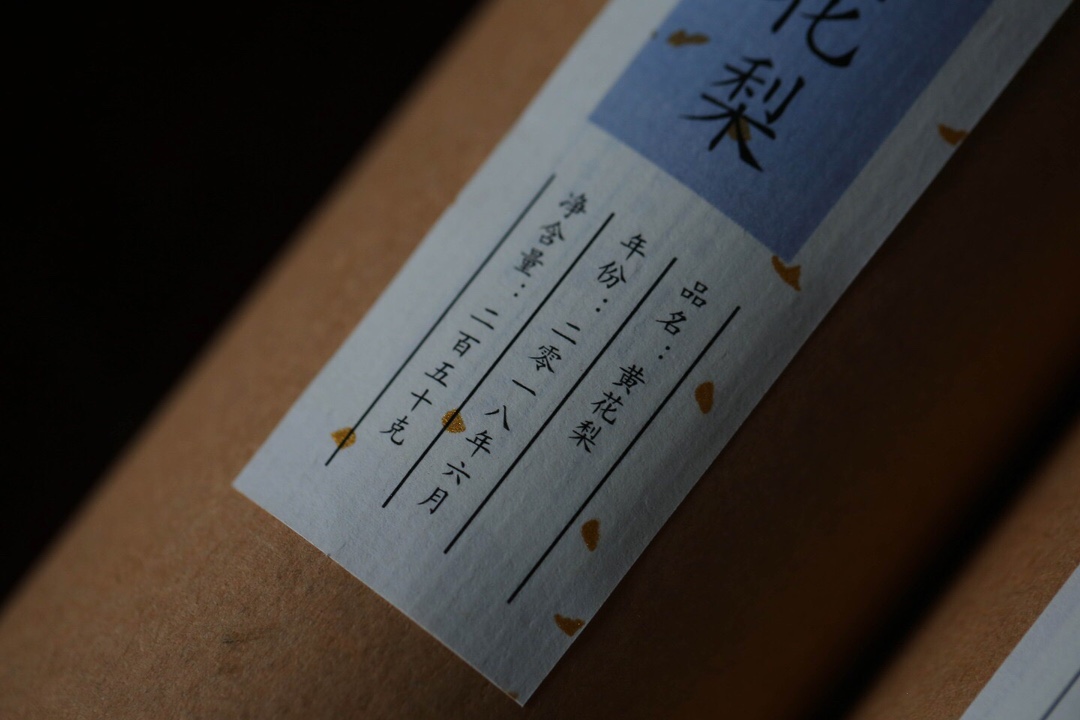 花梨
品名：黄花梨
年份：二零一八年六月
净含量：二百五十克